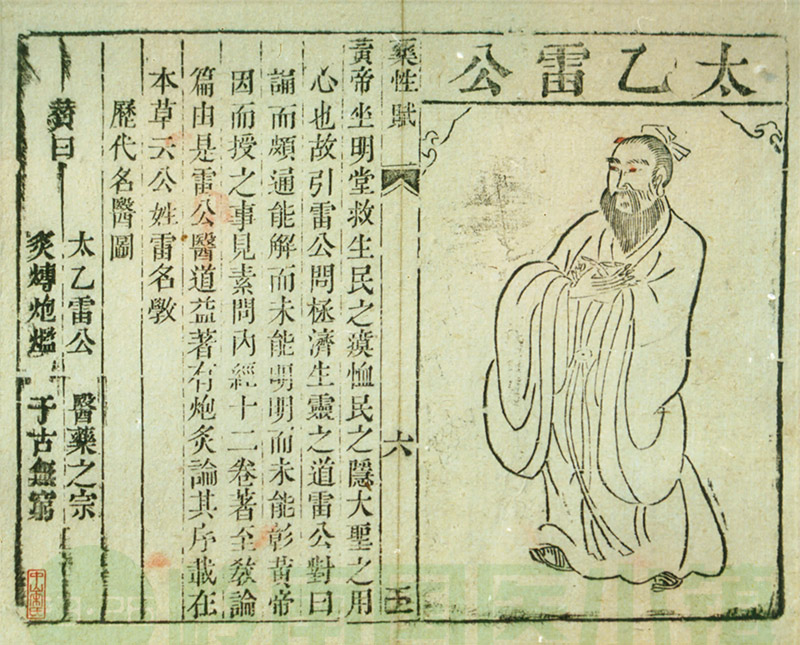 太乙雷公
藥性賦 六 五
黃帝坐明堂救生民之瘼恤民之隱大聖之用
心也故引雷公問極濟生靈之道雷公對曰
誦而頗通能解而未能明明而未能彰黃帝
因而授之事見素問內經十二卷著至教論
篇由是雷公醫道益著有炮炙論其序載在
本草云公姓雷名斆
歷代名醫圖
贊曰
太乙雷公 醫藥之宗
炙煿炮爁 千古無窮